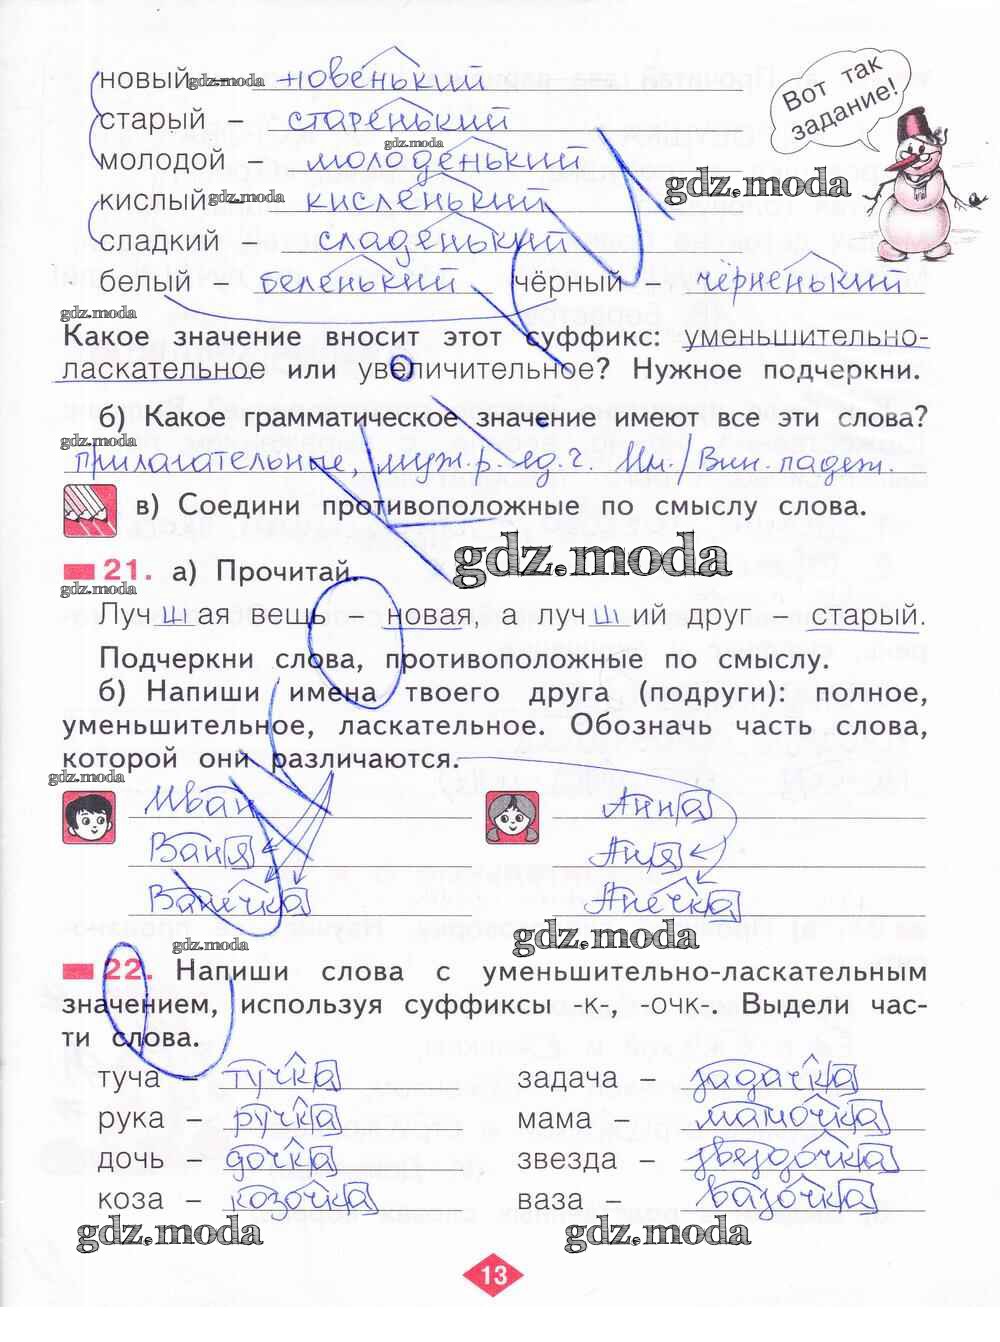 новый – новенький
Вот так
задание!
старый – старенький
молодой – молоденький
кислый – кисленький
сладкий – сладенький
белый – беленький чёрный – чёрненький
Какое значение вносит этот суффикс: уменьшительно-
ласкательное или увеличительное? Нужное подчеркни.
б) Какое грамматическое значение имеют все эти слова?
прилагательные, муж.р. ед.ч. Им./Вин. падеж.
в) Соедини противоположные по смыслу слова.
21. а) Прочитай.
Луч ш ая вещь – новая, а луч ш ий друг – старый.
Подчеркни слова, противоположные по смыслу.
б) Напиши имена твоего друга (подруги): полное,
уменьшительное, ласкательное. Обозначь часть слова,
которой они различаются.
Иван Анна
Ваня Аня
Ванечка Анечка
22. Напиши слова с уменьшительно-ласкательным
значением, используя суффиксы -к-, -очк-. Выдели час-
ти слова.
туча – тучка задача – задачка
рука – ручка мама – мамочка
дочь – дочка звезда – звездочка
коза – козочка ваза – вазочка
13
gdz.moda
gdz.moda
gdz.moda
gdz.moda
gdz.moda
gdz.moda
gdz.moda
gdz.moda
gdz.moda
gdz.moda
gdz.moda
gdz.moda
gdz.moda
gdz.moda